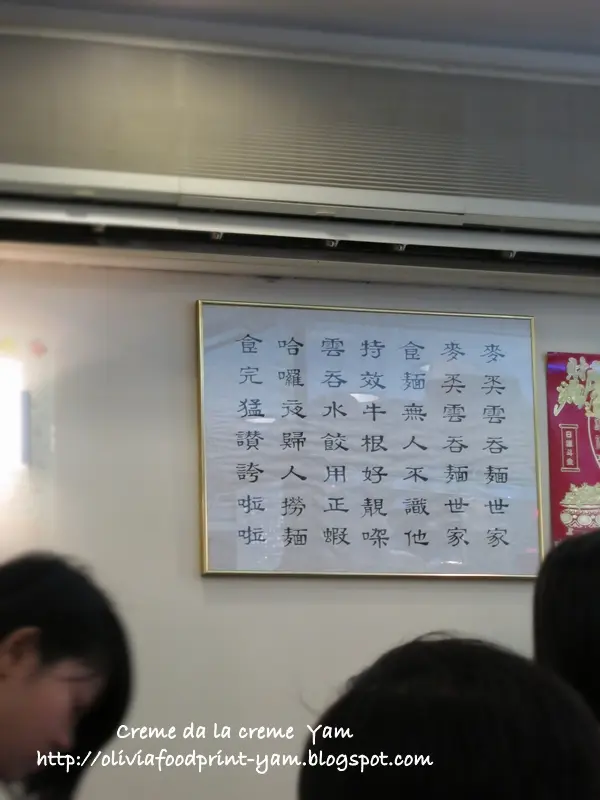 麥奀雲吞麵世家
麥奀雲吞麵世家
食麵無人不識他
特效牛根好靚㗎
雲吞水餃用正蝦
哈囉夜歸人撈麵
食完猛讚誇啦啦
日進斗金
Creme da la creme Yam
http://oliviafoodprint-yam.blogspot.com